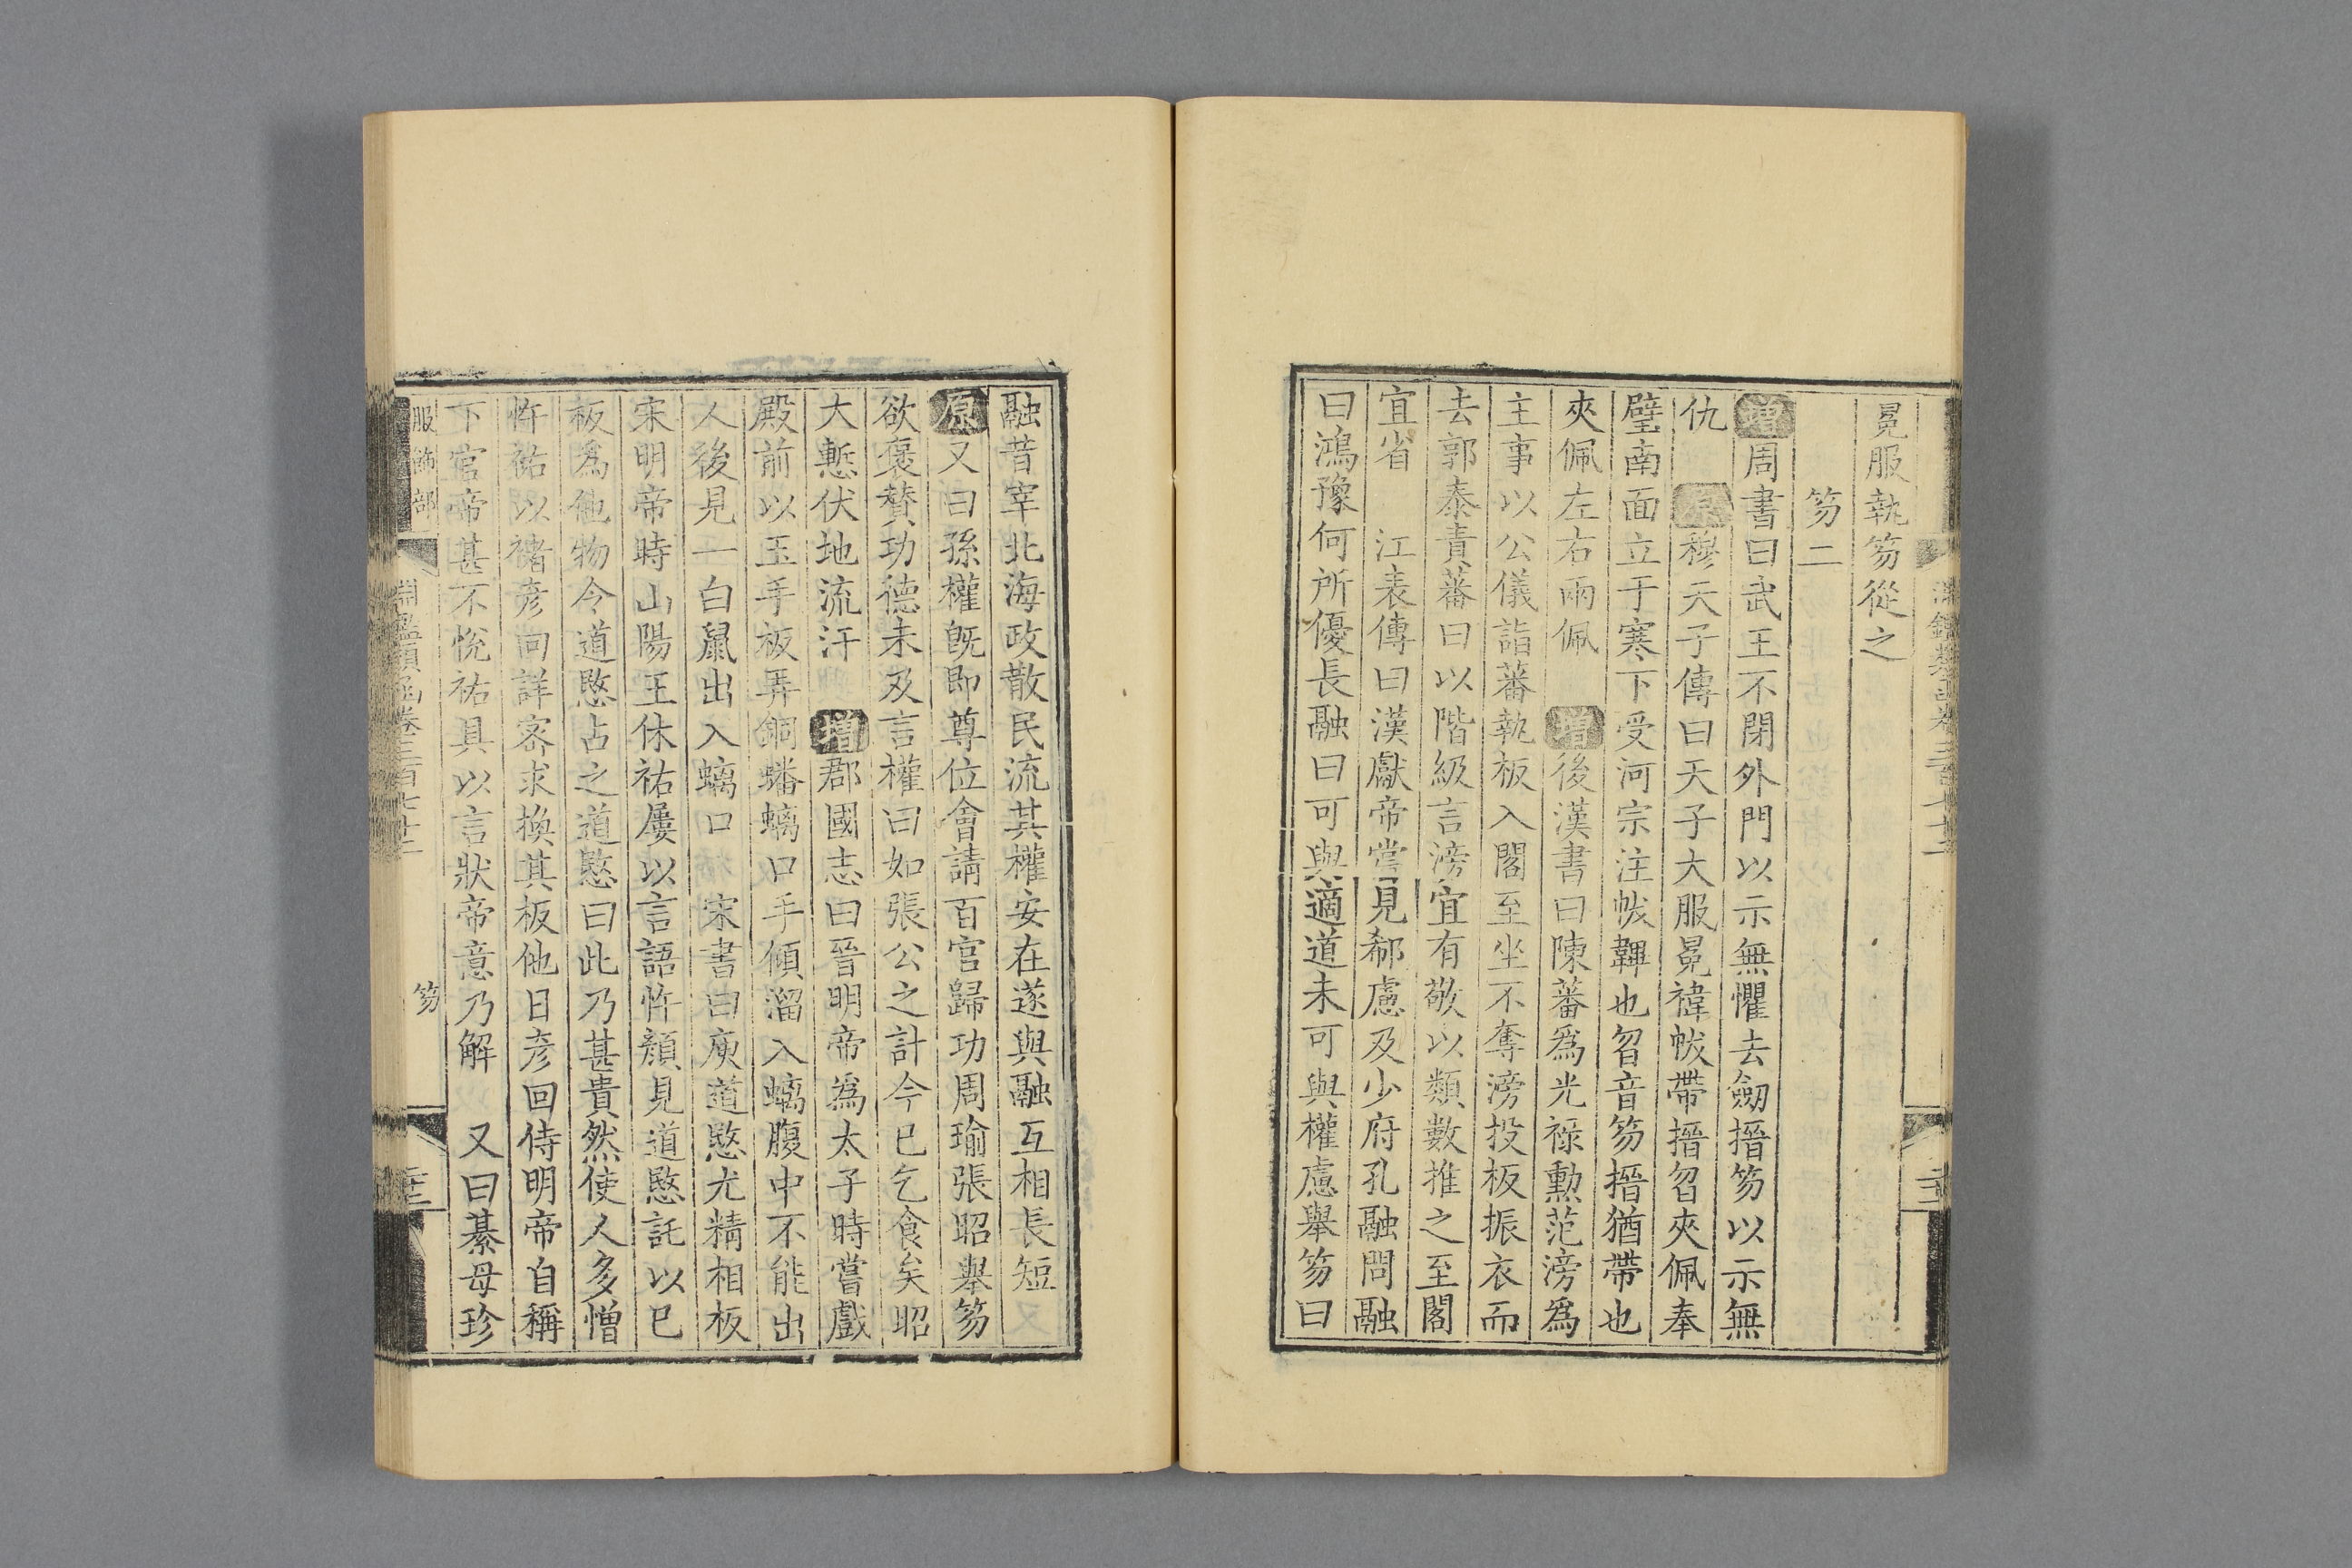 冕服執笏從之
笏二
增周書曰武王不閉外門以示無懼去劒搢笏以示無
仇　原穆天子傳曰天子大服冕褘帗帶搢曶夾佩奉
璧南面立于寒下受河宗注帗韠也曶音笏搢猶帶也
夾佩左右兩佩　增後漢書曰陳蕃爲光祿勲范滂爲
主事以公儀詣蕃執板入閣至坐不奪滂投板振衣而
去郭泰責蕃曰以階級言滂宜有敬以類數推之至閣
宜省　江表傳曰漢獻帝嘗見郗慮及少府孔融問融
曰鴻豫何所優長融曰可與適道未可與權慮舉笏曰
融昔宰北海政散民流其權安在遂與融互相長短
原又曰孫權旣即尊位會請百官歸功周瑜張昭舉笏
欲褒贊功德未及言權曰如張公之計今已乞食矣昭
大慙伏地流汗　增郡國志曰晉明帝爲太子時嘗戲
殿前以玉手板弄銅蟠螭口手傾溜入螭腹中不能出
人後見一白鼠出入螭口　宋書曰庾道愍尤精相板
宋明帝時山陽王休祐屢以言語忤顏見道愍託以已
板爲他物令道愍占之道愍曰此乃甚貴然使人多憯
忤祐以褚彦回詳密求換其板他日彦回侍明帝自稱
下官帝甚不悅祐具以言狀帝意乃解　又曰綦母珍
服飾部
淵鑑類函卷三百七十二
笏